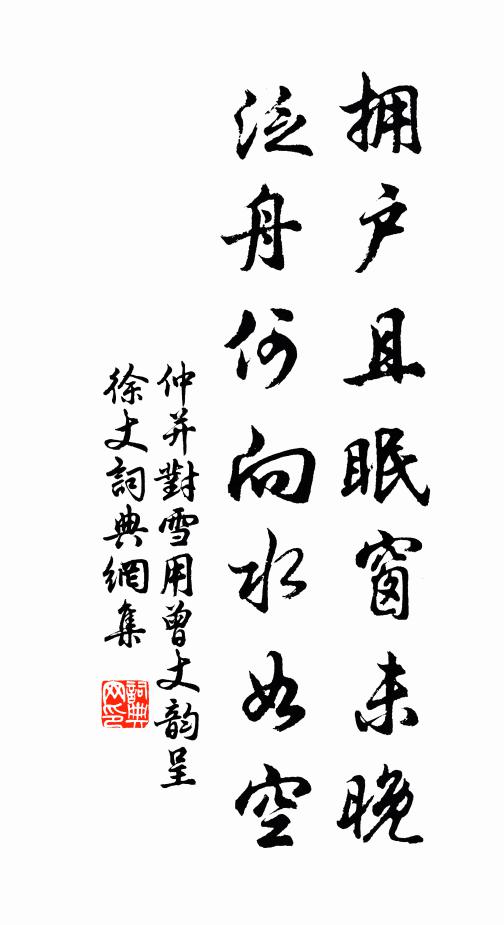 拥户且眠窗未晚
泛舟何向水如空
仲并對雪用曾丈韵呈
徐丈詞典網集
詞典网印